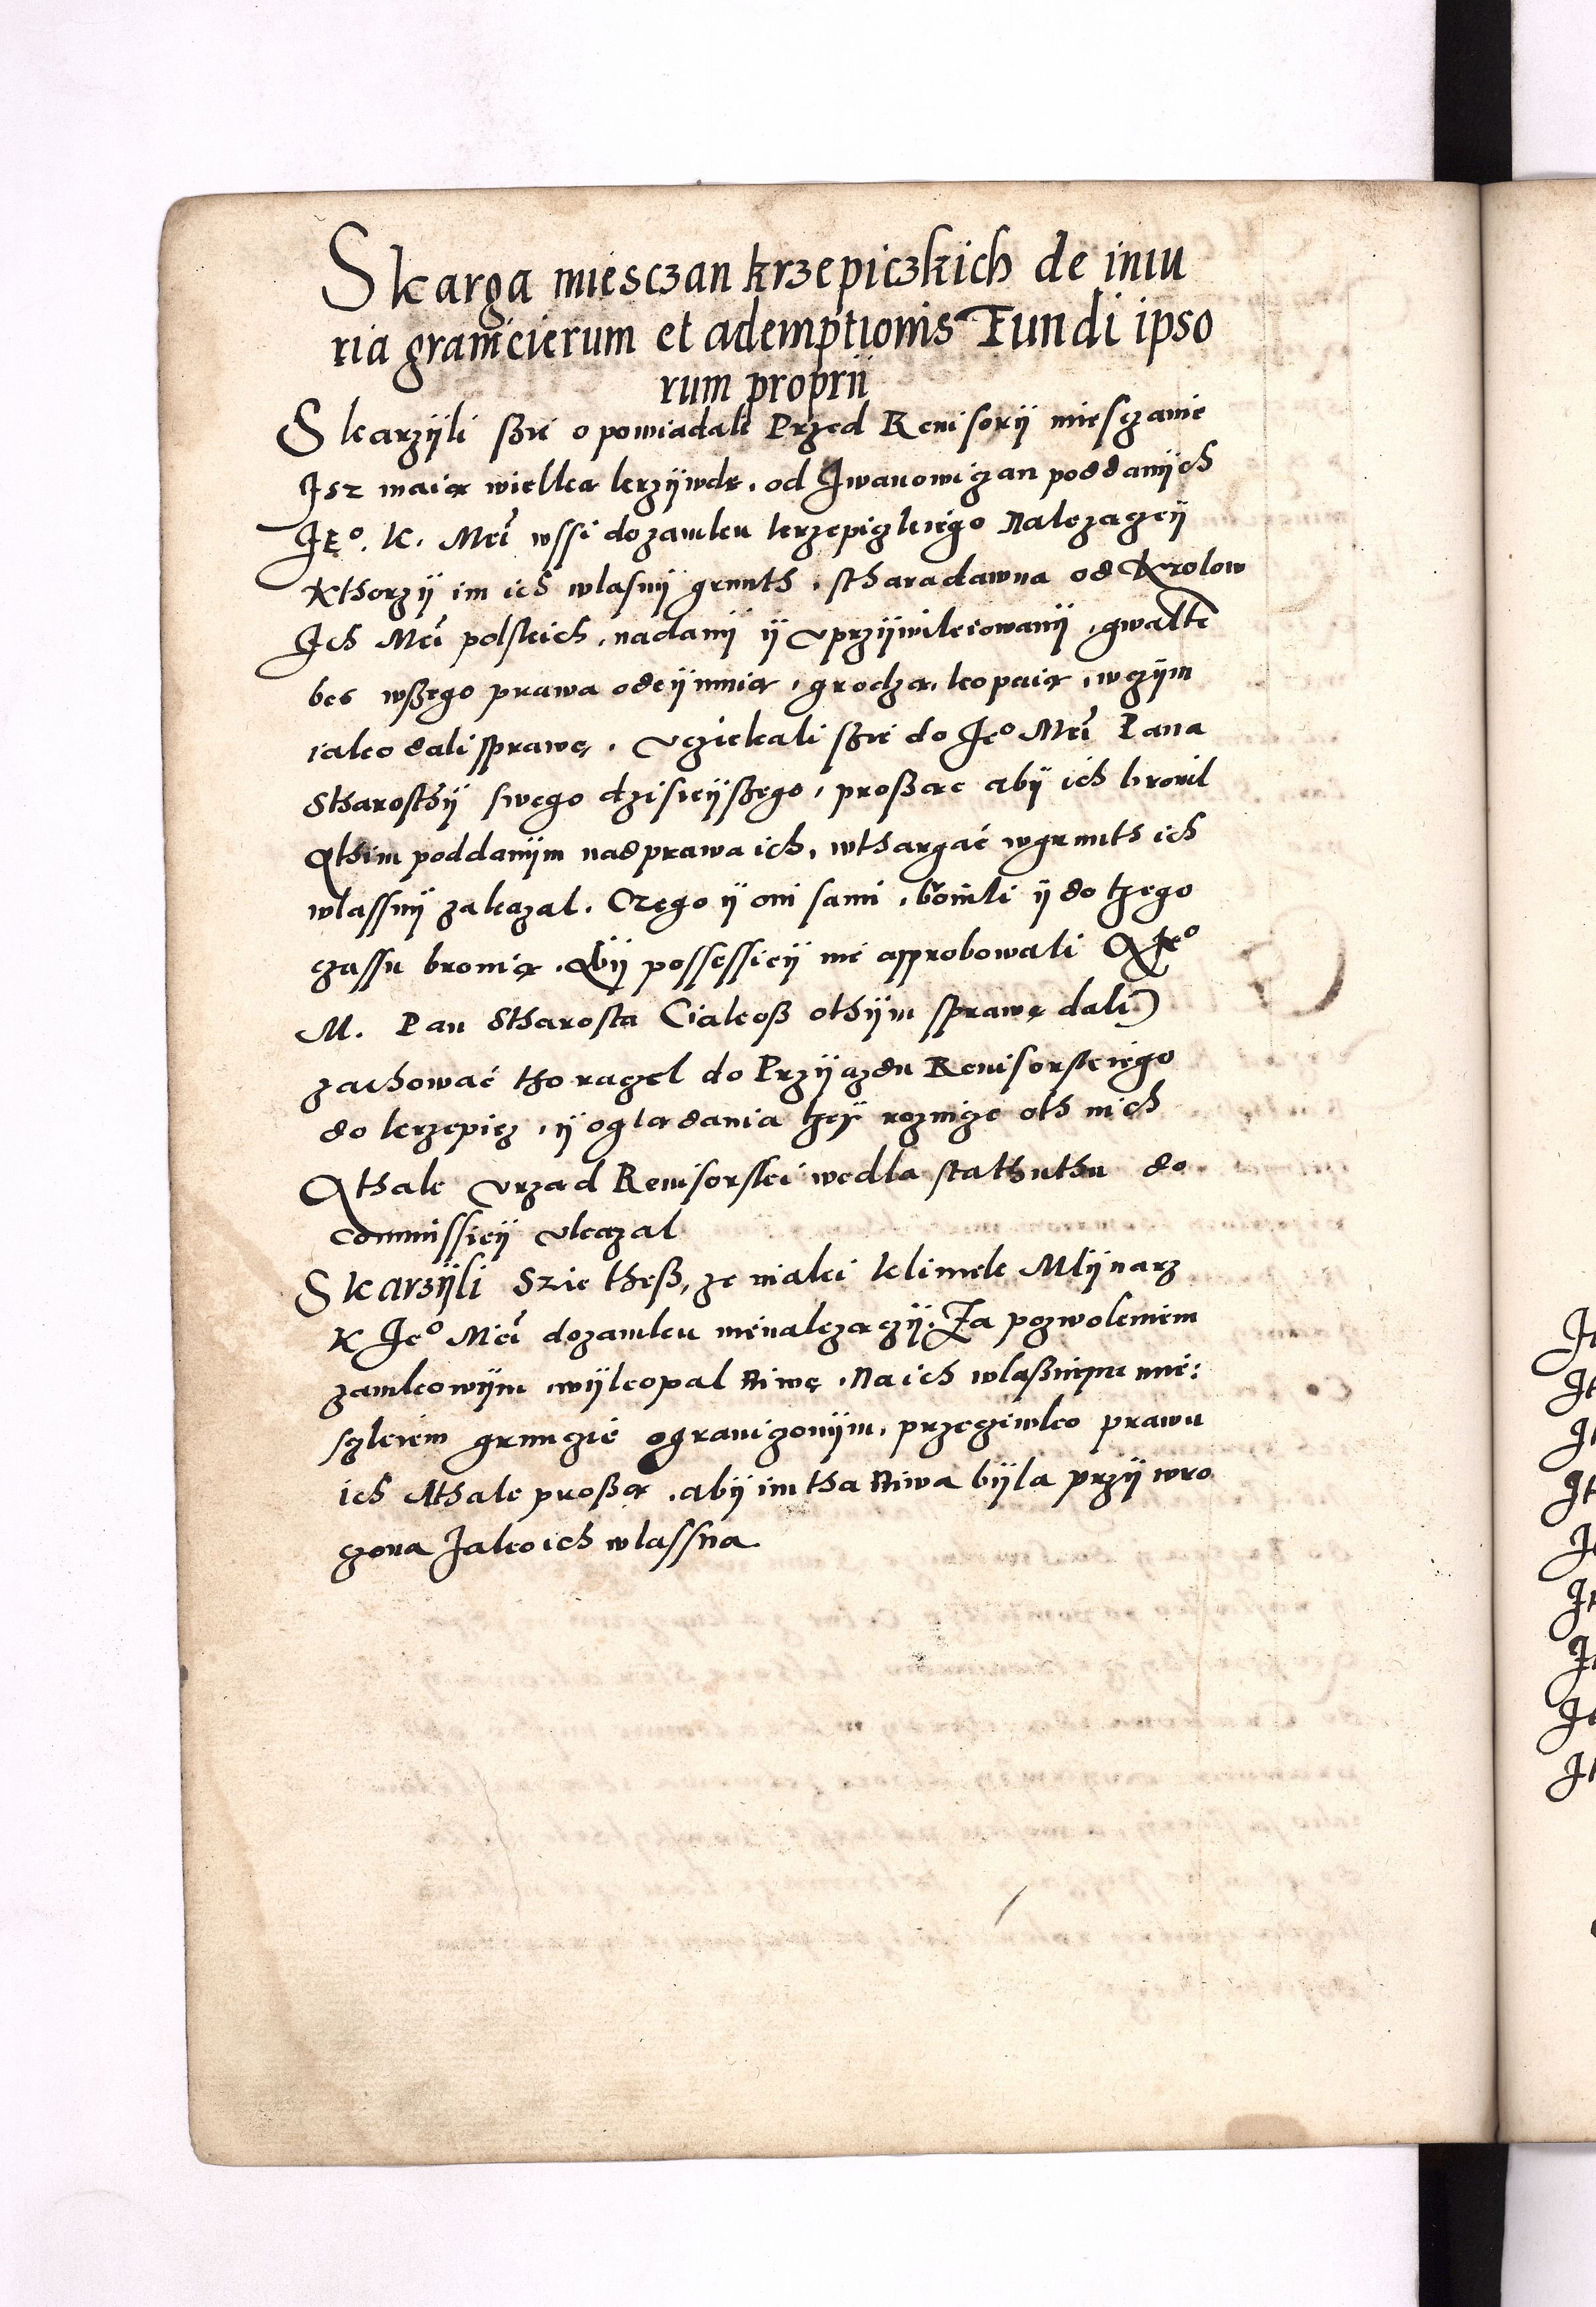 Skarga miesczan krzepiczkich de iniu
ria granicierum et ademptionis Fundi ipso
rum proprii
Skarzÿli szie opowiadali Przed Reuisorÿ miesczanie
Isz maią wielką krzÿwdę, od Iwanowiczan poddanÿch
JEº. K. Mci wssi dozamku krzepiczkiego Nalezaczeÿ
Kthorzÿ im ich wlasnÿ grunth, stharadawna od Krolow
Ich Mci polskich, nadanÿ ÿ vprzÿwileiowanÿ, gwalte
bes wßego prawa odeÿmuią, grodzą, kopaią, wczÿm
iako dali sprawę. Vcziekali szie do Jeº Mci Pana
Stharosthÿ swego dzisieÿszego, proßąc abÿ ich bronil
A thim poddanÿm nad prawa ich, wthargać w grunth ich
wlassnÿ zakazal. Czego ÿ oni sami, bronili ÿ do tzego
czassu bronią. Abÿ possessieÿ nie approbowali A Jeº
M. Pan Stharosta (iakoß othÿm sprawę dali)
zachować tho raczel do Przÿazdu Reuisorskiego
do krzepicz, ÿ oglądania tzeÿ roznicze oth nich
Athak vrząd Reuisorski wedla stathuthu do
commissieÿ vkazal
Skarzÿli Szie theß, ze niaki klimek Mlÿnarz
K Jeº Mci dozamku nienalezaczÿ. Za pozwoleniem
zamkowÿm, wÿkopal Niwę, Na ich wlaßnÿm mie:
sczkiem grunczie ograniczonÿm, przecziwko prawu
ich Athak proßą, abÿ im tha Niwa bÿla przÿwro
czona Jako ich wlassna.